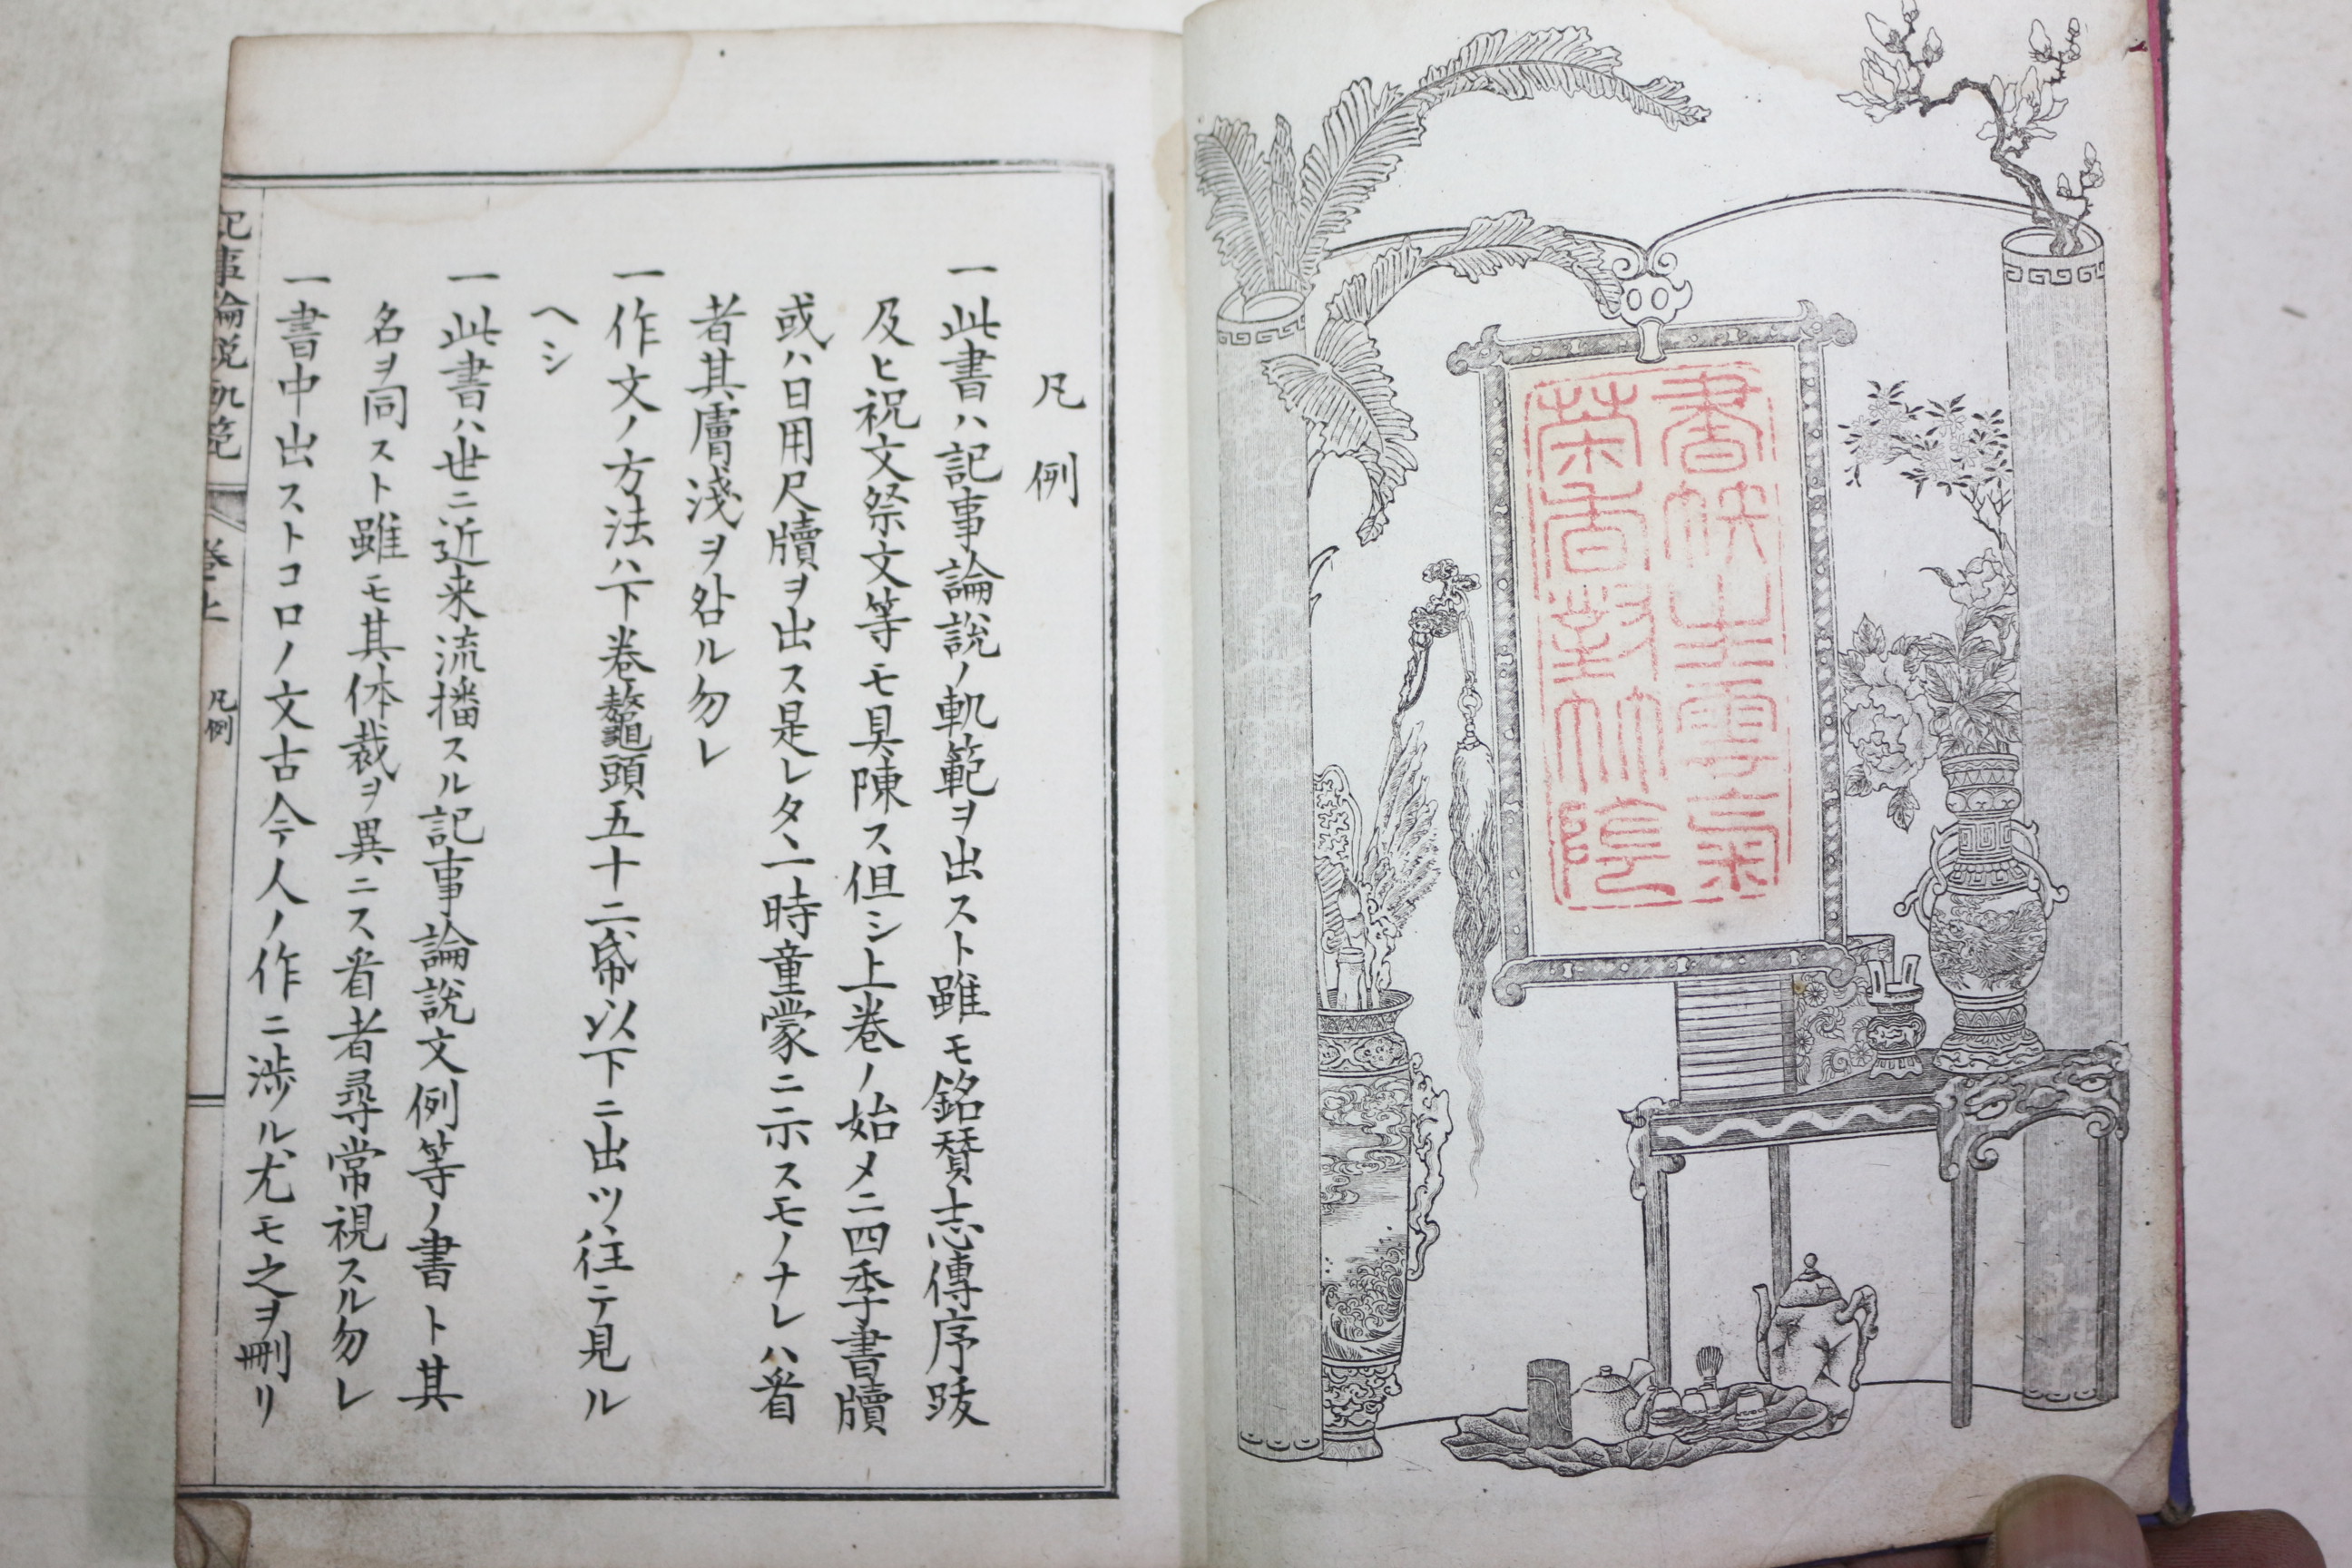 書帙生雲氣
茶香對竹陰
凡例
一此書ハ記事論説ノ軌範ヲ出スト雖モ銘賛志傳序跋
及ヒ祝文祭文等モ具陳ス但シ上巻ノ始メニ四季書牘
或ハ日用尺牘ヲ出ス是レタヽ一時童蒙ニ示スモノナレハ看
者其膚淺ヲ咎ル勿レ
一作文ノ方法ハ下巻鼇頭五十二帋以下ニ出ツ往テ見ル
ヘシ
一此書ハ世ニ近来流播スル記事論説文例等ノ書ト其
名ヲ同スト雖モ其体裁ヲ異ニス看者尋常視スル勿レ
一書中出ストコロノ文古今人ノ作ニ渉ル尤モ之ヲ刪リ
記事論説軌範 巻上 凡例